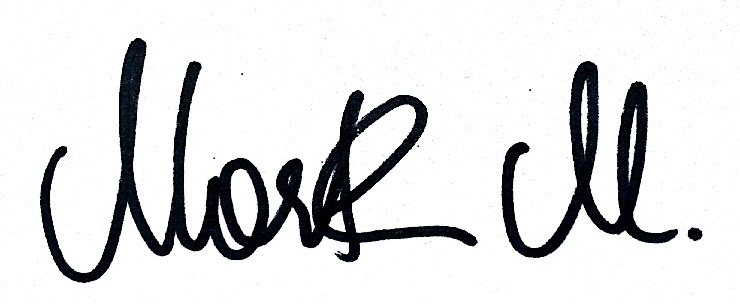 Mark M.